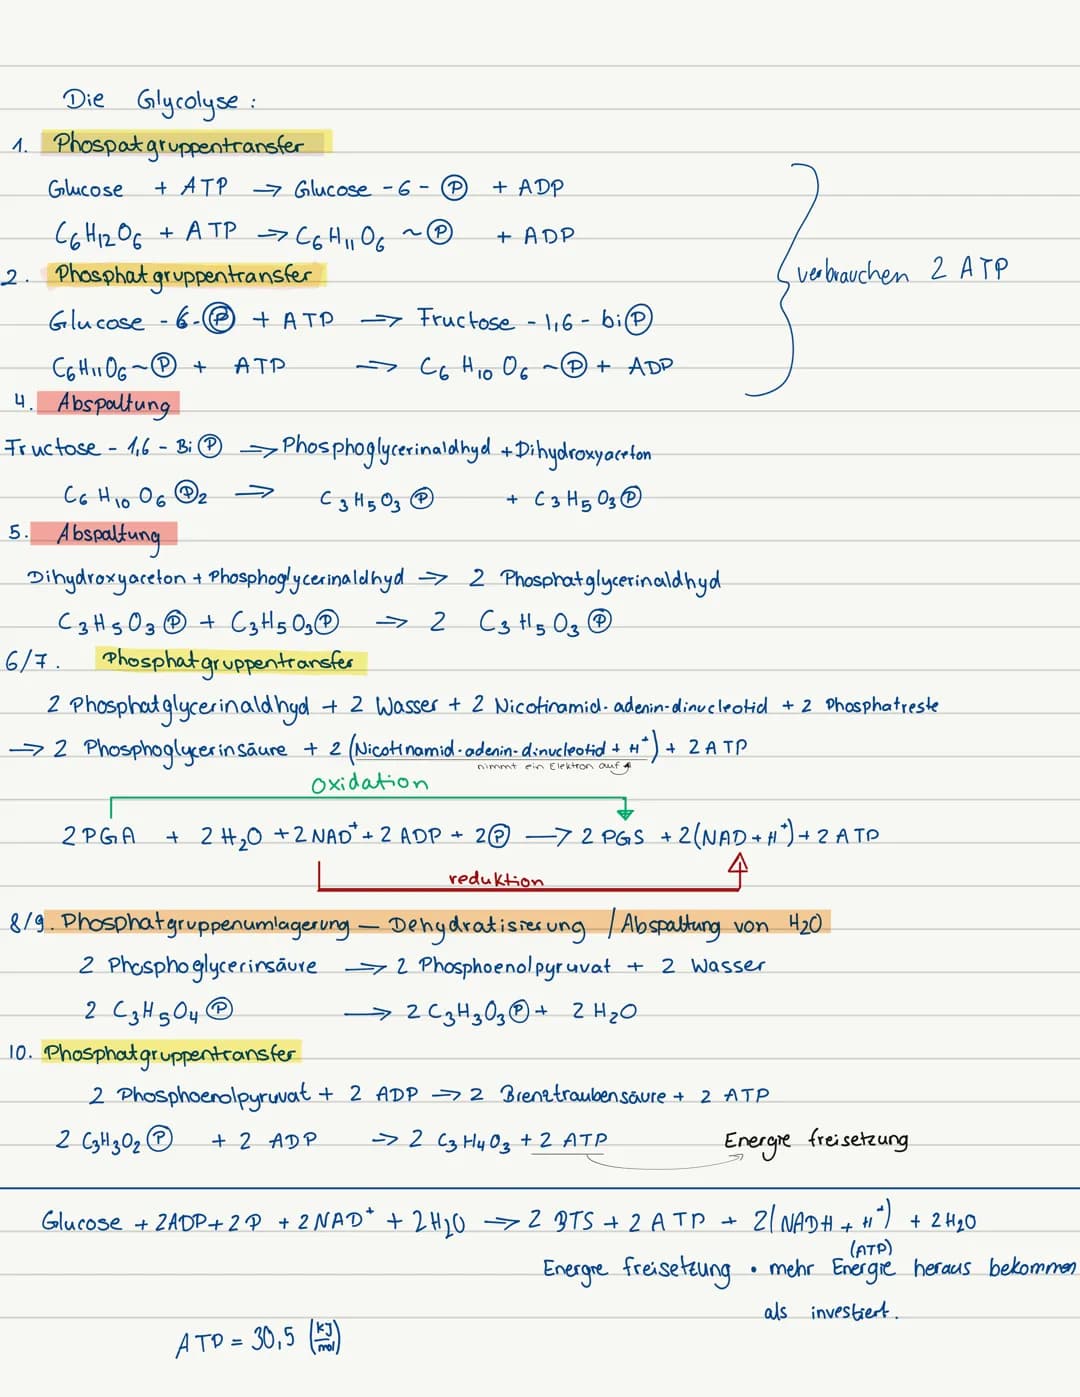 Die Glycolyse:
1. Phospatgruppentransfer
Glucose + ATP → Glucose - 6 - Ⓟ + ADP
C₆H₁₂O₆ + ATP → C₆H₁₁O₆ ~Ⓟ + ADP
2. Phosphatgruppentransfer
verbrauchen 2 ATP
Glucose - 6-Ⓟ + ATP → Fructose - 1,6 - biⓅ
C₆H₁₁O₆~Ⓟ + ATP → C₆H₁₀O₆ ~Ⓟ + ADP
4. Abspaltung
Fructose - 1,6 - BiⓅ → Phosphoglycerinaldhyd + Dihydroxyaceton
C₆H₁₀O₆Ⓟ₂ → C₃H₅O₃Ⓟ + C₃H₅O₃Ⓟ
5. Abspaltung
Dihydroxyaceton + Phosphoglycerinaldhyd → 2 Phosphatglycerinaldhyd
C₃H₅O₃Ⓟ + C₃H₅O₃Ⓟ → 2 C₃H₅O₃Ⓟ
6/7. Phosphatgruppentransfer
2 Phosphatglycerinaldhyd + 2 Wasser + 2 Nicotinamid-adenin-dinucleotid + 2 Phosphatreste
→ 2 Phosphoglycerinsäure + 2 (Nicotinamid-adenin-dinucleotid + H⁺) + 2 ATP
nimmt ein Elektron auf
Oxidation
2 PGA + 2 H₂O + 2 NAD⁺ + 2 ADP + 2Ⓟ → 2 PGS + 2(NAD + H⁺) + 2 ATP
reduktion
8/9. Phosphatgruppenumlagerung – Dehydratisierung / Abspaltung von H₂O
2 Phosphoglycerinsäure → 2 Phosphoenolpyruvat + 2 Wasser
2 C₃H₅O₄Ⓟ → 2 C₃H₃O₃Ⓟ + 2 H₂O
10. Phosphatgruppentransfer
2 Phosphoenolpyruvat + 2 ADP → 2 Brenztraubensäure + 2 ATP
2 C₃H₃O₂Ⓟ + 2 ADP → 2 C₃H₄O₃ + 2 ATP Energie freisetzung
Glucose + 2ADP + 2P + 2NAD⁺ + 2H₂O → 2 BTS + 2 ATP + 2(NADH + H⁺) + 2H₂O
(ATP)
Energie freisetzung • mehr Energie heraus bekommen
als investiert.
ATP = 30,5 (kJ/mol)